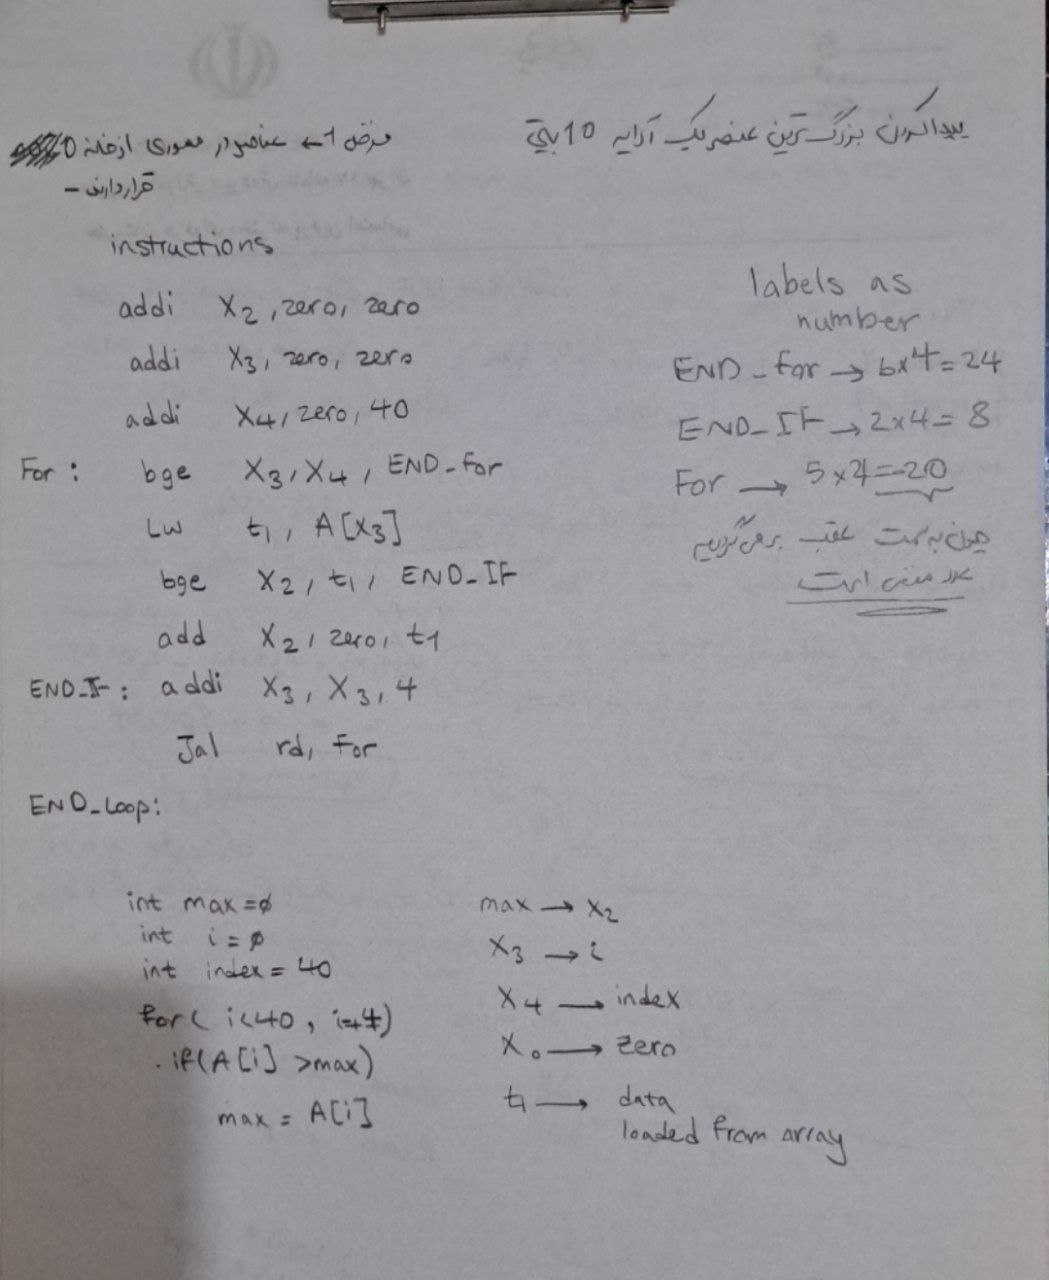 پیدا کردن بزرگ ترین عنصر یک آرایه 10 بیتی
فرض 1 ← عناصر در مموری از خانه 0
قرار دارند -
instructions
addi X2, zero, zero
addi X3, zero, zero
addi X4, zero, 40
For: bge X3, X4, END_for
Lw t1, A[X3]
bge X2, t1, END_IF
add X2, zero, t1
END_IF: addi X3, X3, 4
Jal rd, For
END_Loop:
labels as
number
END_for → 6x4=24
END_IF → 2x4=8
For → 5x4=-20
چون به سمت عقب بر می گردیم
عدد منفی است
int max=ø
int i=ø
int index=40
for( i<40, i=+4)
. if(A[i] >max)
max = A[i]
max → X2
X3 → i
X4 → index
X0 → zero
t1 → data
loaded from array